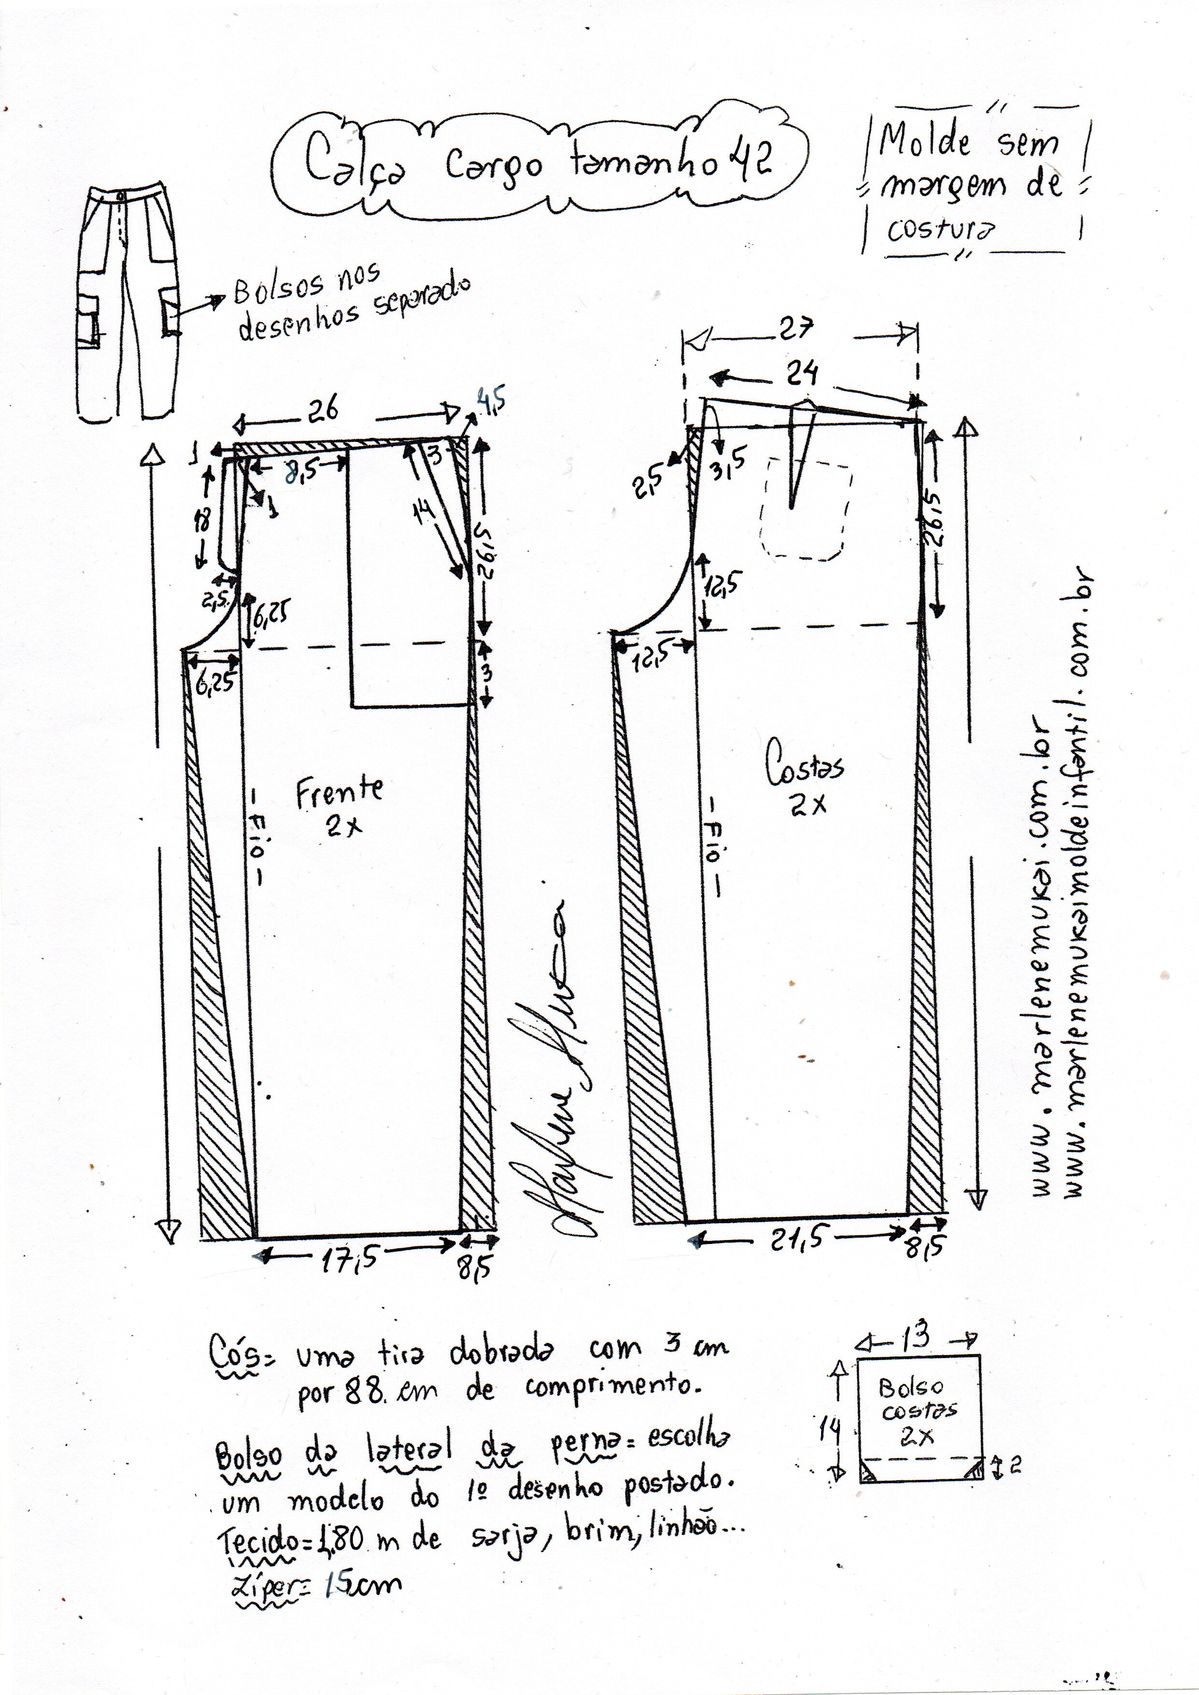 Calça cargo tamanho 42
Molde sem
margem de
costura
Bolsos nos
desenhos separado
27
24
26
4,5
1
8,5
3
1
18
14
26,5
2,5
6,25
6,25
3
2,5
3,5
26,5
12,5
12,5
Frente
2x
-Fio-
Costas
2x
-Fio-
17,5
8,5
21,5
8,5
www.marlenemukai.com.br
www.marlenemukaimoldeinfantil.com.br
Cós= uma tira dobrada com 3 cm
por 88 cm de comprimento.
Bolso da lateral da perna= escolha
um modelo do 1º desenho postado.
Tecido=1,80 m de sarja, brim, linhão...
Zíper= 15cm
13
14
Bolso
costas
2x
2